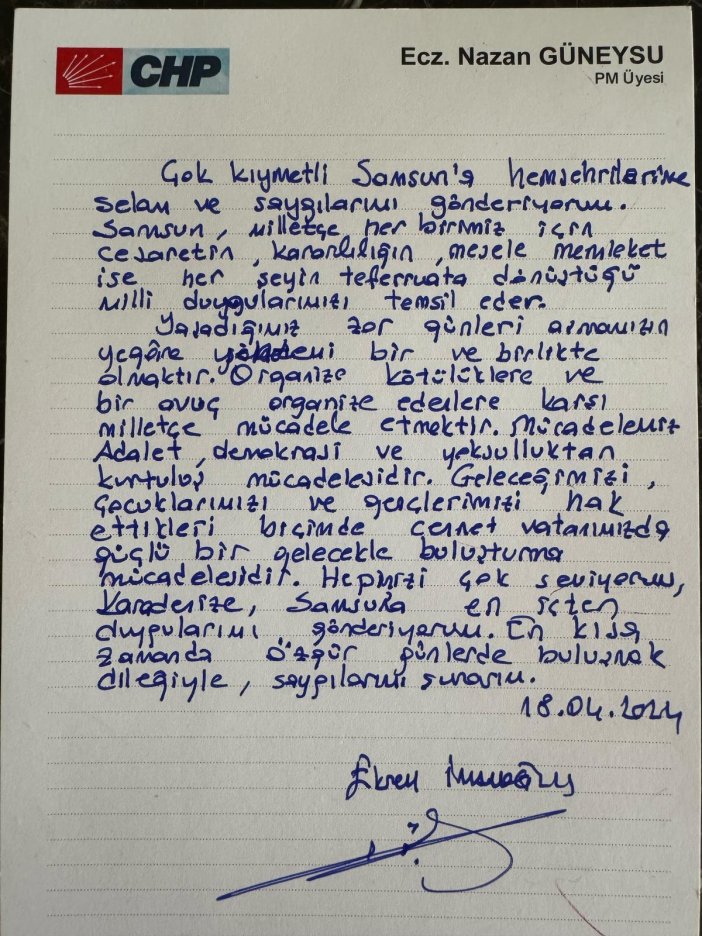 CHP
Ecz. Nazan GÜNEYSU
PM Üyesi
Çok kıymetli Samsun'a hemşehrilerime
selam ve saygılarımı gönderiyorum.
Samsun, milletçe her birimiz için
cesaretin, kararlılığın, mesele memleket
ise her şeyin teferruata dönüştüğü
milli duygularımızı temsil eder.
Yaşadığımız zor günleri aşmamızın
yegâne yöntemi bir ve birlikte
olmaktır. Organize kötülüklere ve
bir avuç organize edenlere karşı
milletçe mücadele etmektir. Mücadelemiz
Adalet, demokrasi ve yoksulluktan
kurtuluş mücadelesidir. Geleceğimizi,
çocuklarımızı ve gençlerimizi hak
ettikleri biçimde cennet vatanımızda
güçlü bir gelecekle buluşturma
mücadelesidir. Hepinizi çok seviyorum,
Karadenize, Samsuna en içten
duygularımı gönderiyorum. En kısa
zamanda özgür günlerde buluşmak
dileğiyle, saygılarımı sunarım.
18.04.2024
Ekrem İmamoğlu